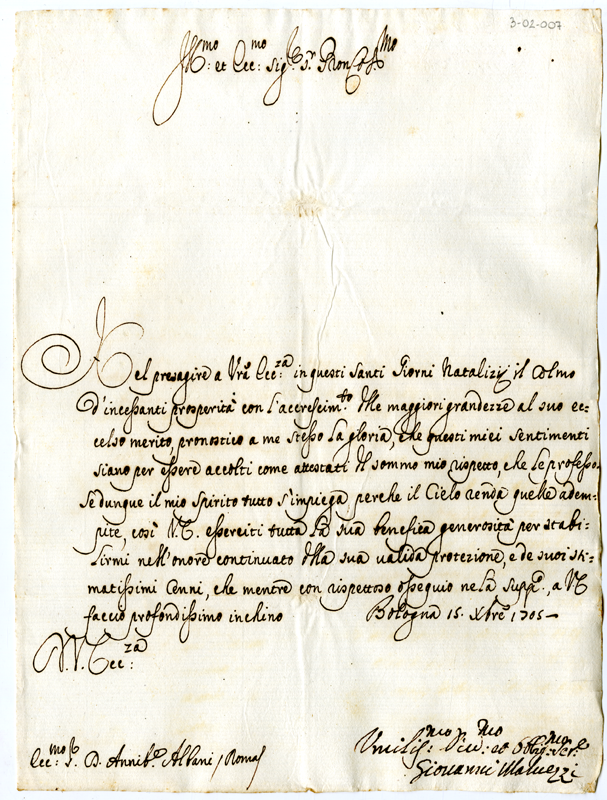 3-02-007
Ill.mo et Ecc.mo Sig.r S.r Pron Col.mo
Nel presagire a Vrã Ecc.za in questi Santi Giorni Natalizij il Colmo
d'incessanti prosperità con l'accrescim.to delle maggiori grandezze al suo ec=
celso merito, pronostico a me stesso la gloria, che questi miei sentimenti
siano per essere accolti come attestati del sommo mio rispetto, che le professo.
Se dunque il mio Spirito tutto s'impiega perche il Cielo renda quelle adem=
pite, così V.E. esserciti tutta la sua benefica generosità per stabi=
lirmi nell'onore continuato della sua valida protezione, e de suoi sti=
matissimi Cenni, che mentre con rispettoso ossequio ne la supp.co, a VE
faccio profondissimo inchino Bologna 15. Xbre 1705
V. V. Ecc.za
Ecc.mo S. D. Annib.e Albani / Roma /
Umilis.mo Div.mo et Obblig.mo Ser.e
Giovanni Malvezzi